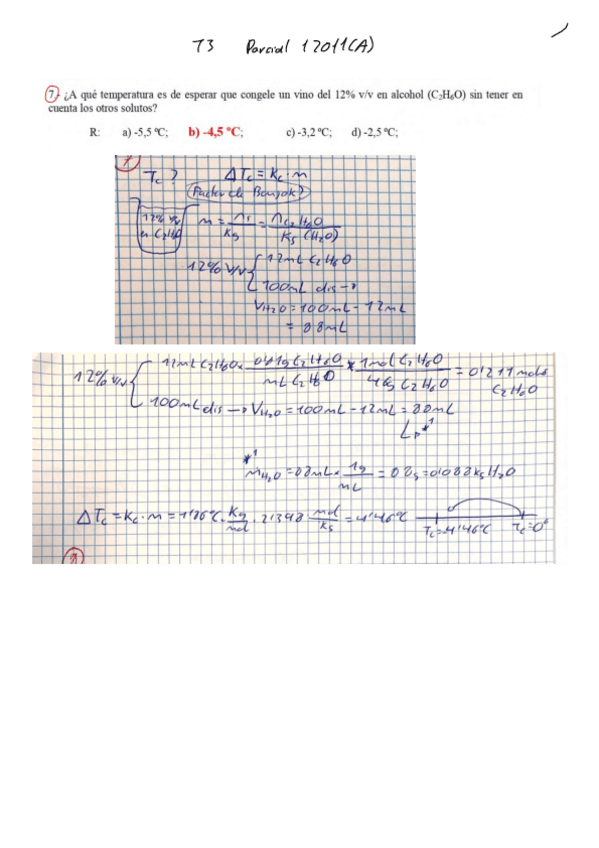 T3 Parcial 1 2011(A)
7.- ¿A qué temperatura es de esperar que congele un vino del 12% v/v en alcohol (C₂H₆O) sin tener en
cuenta los otros solutos?
R: a) -5,5 ºC; b) -4,5 ºC; c) -3,2 ºC; d) -2,5 ºC;
7
Tc ? ΔTc = Kc · m
(Factor de
12% v/v
en C₂H₆O
m = ns/Kg = nC₂H₆O/Kg (H₂O)
12% v/v { 12mL C₂H₆O
100mL dis →
VH₂O = 100mL - 12mL
= 88mL
12% v/v { 12mL C₂H₆O × 0'81g C₂H₆O/mL C₂H₆O × 1mol C₂H₆O/46g C₂H₆O = 0'211 moles C₂H₆O
100mL dis → VH₂O = 100mL - 12mL = 88mL
↳ *1
*1
mH₂O = 88mL × 1g/mL = 88g = 0'088Kg H₂O
ΔTc = Kc · m = 1'86ºC · Kg/mol · 2'398 mol/Kg = 4'46ºC
Tc = -4'46ºC Tc = 0º
8